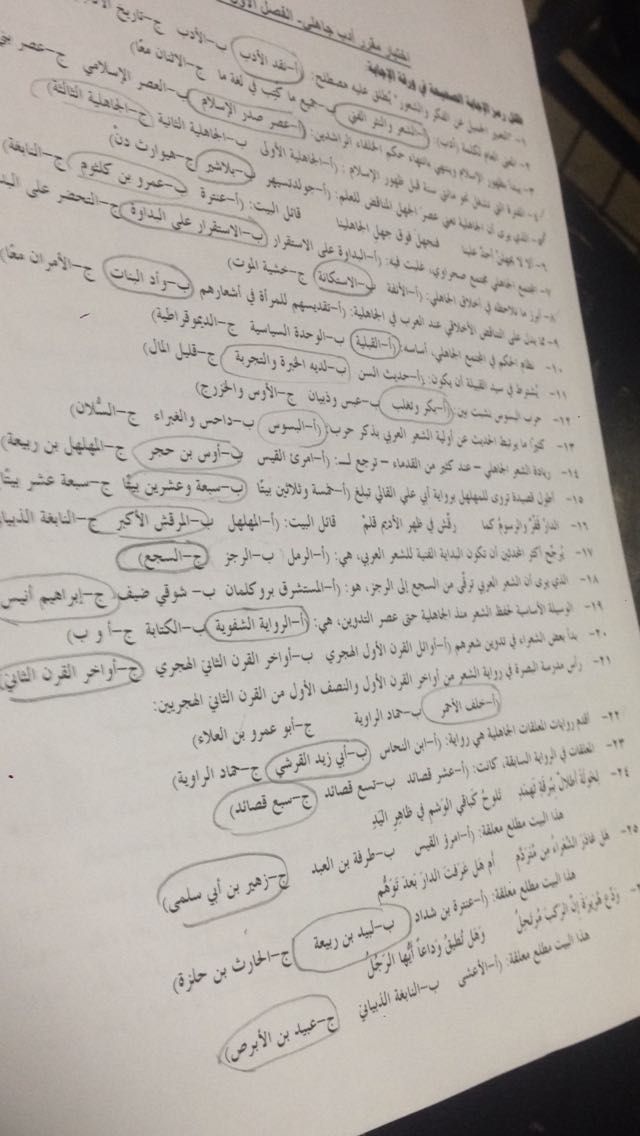 اختبار مقرر أدب جاهلي- الفصل الأول
تظلل رمز الإجابة الصحيحة في ورقة الإجابة:
١- "التعبير الجميل عن الفكر والشعور" يُطلق عليه مصطلح: (أ-نقد الأدب ب-الأدب ج-تاريخ
٢- المعنى العام لكلمة (أدب): (أ-الشعر والنثر الفني ب-جميع ما كُتِب في لغة ما ج-الاثنان معًا)
٣- يبدأ بظهور الإسلام وينتهي بانتهاء حكم الخلفاء الراشدين: (أ-عصر صدر الإسلام ب-العصر الإسلامي ج-عصر بني
٤- الفترة التي تشمل نحو مائتي سنة قبل ظهور الإسلام: (أ-الجاهلية الأولى ب-الجاهلية الثانية ج-الجاهلية الثالثة)
الذي يرى أن الجاهلية تعني عصر الجهل المناقض للعلم: (أ-جولدتسيهر ب-بلاشير ج-هيوارث دن)
٦- ألا لا يجهلن أحد علينا فنجهل فوق جهل الجاهلينا قائل البيت: (أ-عنترة ب-عمرو بن كلثوم ج-النابغة)
٧- المجتمع الجاهلي مجتمع صحراوي، غلبت فيه: (أ-البداوة على الاستقرار ب-الاستقرار على البداوة ج-التحضر على
٨- أبرز ما نلاحظه في أخلاق الجاهلي: (أ-الأنفة ب-الاستكانة ج-خشية الموت)
٩- مما يدل على التناقض الأخلاقي عند العرب في الجاهلية: (أ-تقديسهم للمرأة في أشعارهم ب-وأد البنات ج-الأمران معًا)
١٠- نظام الحكم في المجتمع الجاهلي، أساسه: (أ-القبلية ب-الوحدة السياسية ج-الديموقراطية)
١١- يُشترط في سيد القبيلة أن يكون: (أ-حديث السن ب-لديه الخبرة والتجربة ج-قليل المال)
١٢- حرب البسوس نشبت بين: (أ-بكر وتغلب ب-عبس وذبيان ج-الأوس والخزرج)
١٣- كثيرًا ما يرتبط الحديث عن أولية الشعر العربي بذكر حرب: (أ-البسوس ب-داحس والغبراء ج-السُّلان)
١٤- ريادة الشعر الجاهلي – عند كثير من القدماء – ترجع لـ: (أ-امرئ القيس ب-أوس بن حجر ج-المهلهل بن ربيعة)
١٥- أطول قصيدة تروى للمهلهل برواية أبي علي القالي تبلغ (أ-خمسة وثلاثين بيتًا ب-سبعة وعشرين بيتًا ج-سبعة عشر بيتًا
١٦- الدار قفرٌ والرسوم كما رقّش في ظهر الأديم قلمْ قائل البيت: (أ-المهلهل ب-المرقش الأكبر ج-النابغة
١٧- يُرجّح أكثر المحدثين أن تكون البداية الفنية للشعر العربي، هي: (أ-الرمل ب-الرجز ج-السجع)
١٨- الذي يرى أن الشعر العربي ترقّى من السجع إلى الرجز، هو: (أ-المستشرق بروكلمان ب- شوقي ضيف ج-إبراهيم أنيس
١٩- الوسيلة الأساسية لحفظ الشعر منذ الجاهلية حتى عصر التدوين، هي: (أ-الرواية الشفوية ب-الكتابة ج-أ و ب)
٢٠- بدأ بعض الشعراء في تدوين شعرهم (أ-أوائل القرن الأول الهجري ب-أواخر القرن الثاني الهجري ج-أواخر القرن الثاني)
٢١- رأس مدرسة البصرة في رواية الشعر من أواخر القرن الأول والنصف الأول من القرن الثاني الهجريين:
(أ-خلف الأحمر ب-حماد الراوية ج-أبو عمرو بن العلاء)
٢٢- أقدم روايات المعلقات الجاهلية هي رواية: (أ-ابن النحاس ب-أبي زيد القرشي ج-حماد الراوية)
٢٣- المعلقات في الرواية السابقة، كانت: (أ-عشر قصائد ب-تسع قصائد ج-سبع قصائد)
٢٤- لِخولَةَ أَطلالٌ بِبُرقَةِ ثَهمَدِ تَلوحُ كَباقي الوَشمِ في ظاهِرِ اليَدِ
هذا البيت مطلع معلقة: (أ-امرؤ القيس ب-طرفة بن العبد ج-زهير بن أبي سلمى)
٢٥- هَل غادَرَ الشُعَراءُ مِن مُتَرَدَّمِ أَم هَل عَرَفتَ الدارَ بَعدَ تَوَهُّمِ
هذا البيت مطلع معلقة: (أ-عنترة بن شداد ب-لبيد بن ربيعة ج-الحارث بن حلزة)
وَدِّع هُرَيرَةَ إِنَّ الرَكبَ مُرتَحِلُ وَهَل تُطيقُ وَداعاً أَيُّها الرَجُلُ
هذا البيت مطلع معلقة: (أ-الأعشى ب-النابغة الذبياني ج-عبيد بن الأبرص)